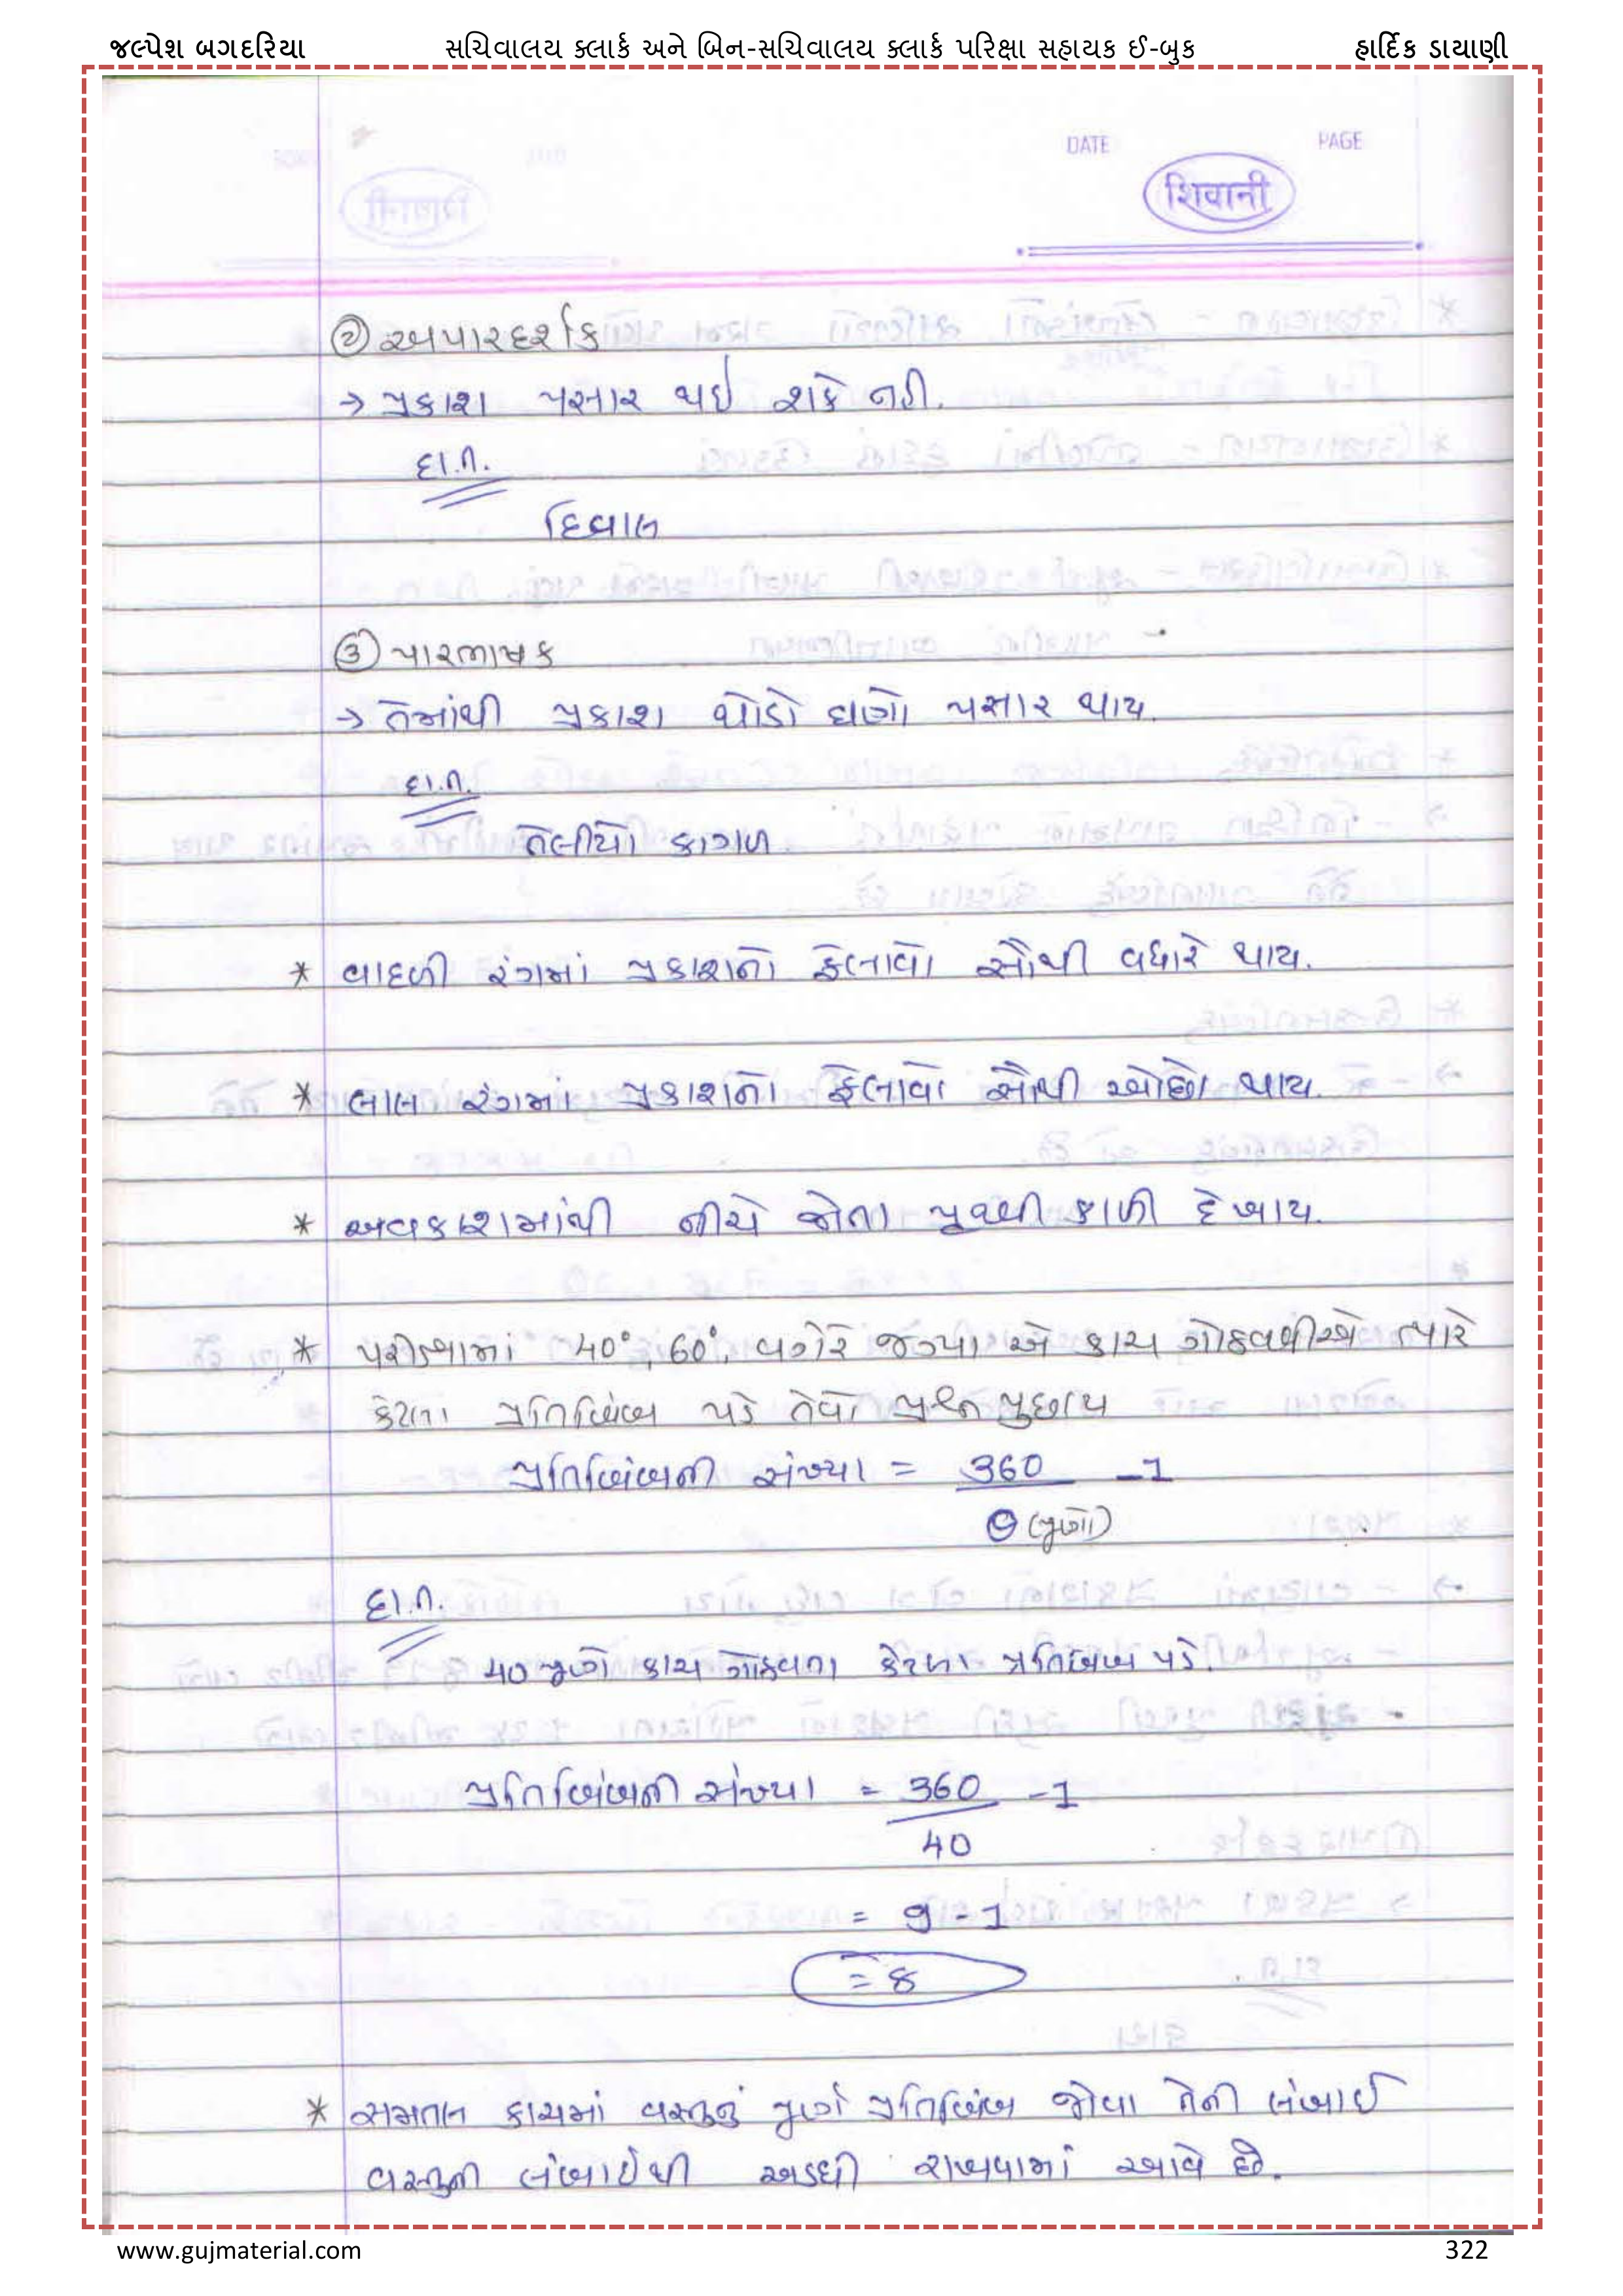 જલ્પેશ બગદરિયા સચિવાલય ક્લાર્ક અને બિન-સચિવાલય ક્લાર્ક પરિક્ષા સહાયક ઈ-બુક હાર્દિક ડાયાણી
DATE PAGE
शिवानी
② અપારદર્શક
→ પ્રકાશ પસાર થઇ શકે નહી.
દા.ત.
દિવાલ
③ પારભાષક
→ તેમાંથી પ્રકાશ થોડો ઘણો પસાર થાય.
દા.ત.
તેલીયો કાગળ.
* વાદળી રંગમાં પ્રકાશનો ફેલાવો સૌથી વધારે થાય.
* લાલ રંગમાં પ્રકાશનો ફેલાવો સૌથી ઓછો થાય.
* અવકાશમાંથી નીચે જોતા પૃથ્વી કાળી દેખાય.
* પરીક્ષામાં 40°, 60°, વગેરે જગ્યા એ કાચ ગોઠવવીએ ત્યારે
કેટલા પ્રતિબિંબ પડે તેવો પ્રશ્ન પુછાય
પ્રતિબિંબની સંખ્યા = 360 -1
θ (ખૂણો)
દા.ત.
40 ખૂણે કાચ ગોઠવતા કેટલા પ્રતિબિંબ પડે.
પ્રતિબિંબની સંખ્યા = 360 -1
40
= 9 - 1
= 8
* સમતલ કાચમાં વસ્તુનું પૂર્ણ પ્રતિબિંબ જોવા તેની લંબાઈ
વસ્તુની લંબાઈથી અડધી રાખવામાં આવે છે.
www.gujmaterial.com 322